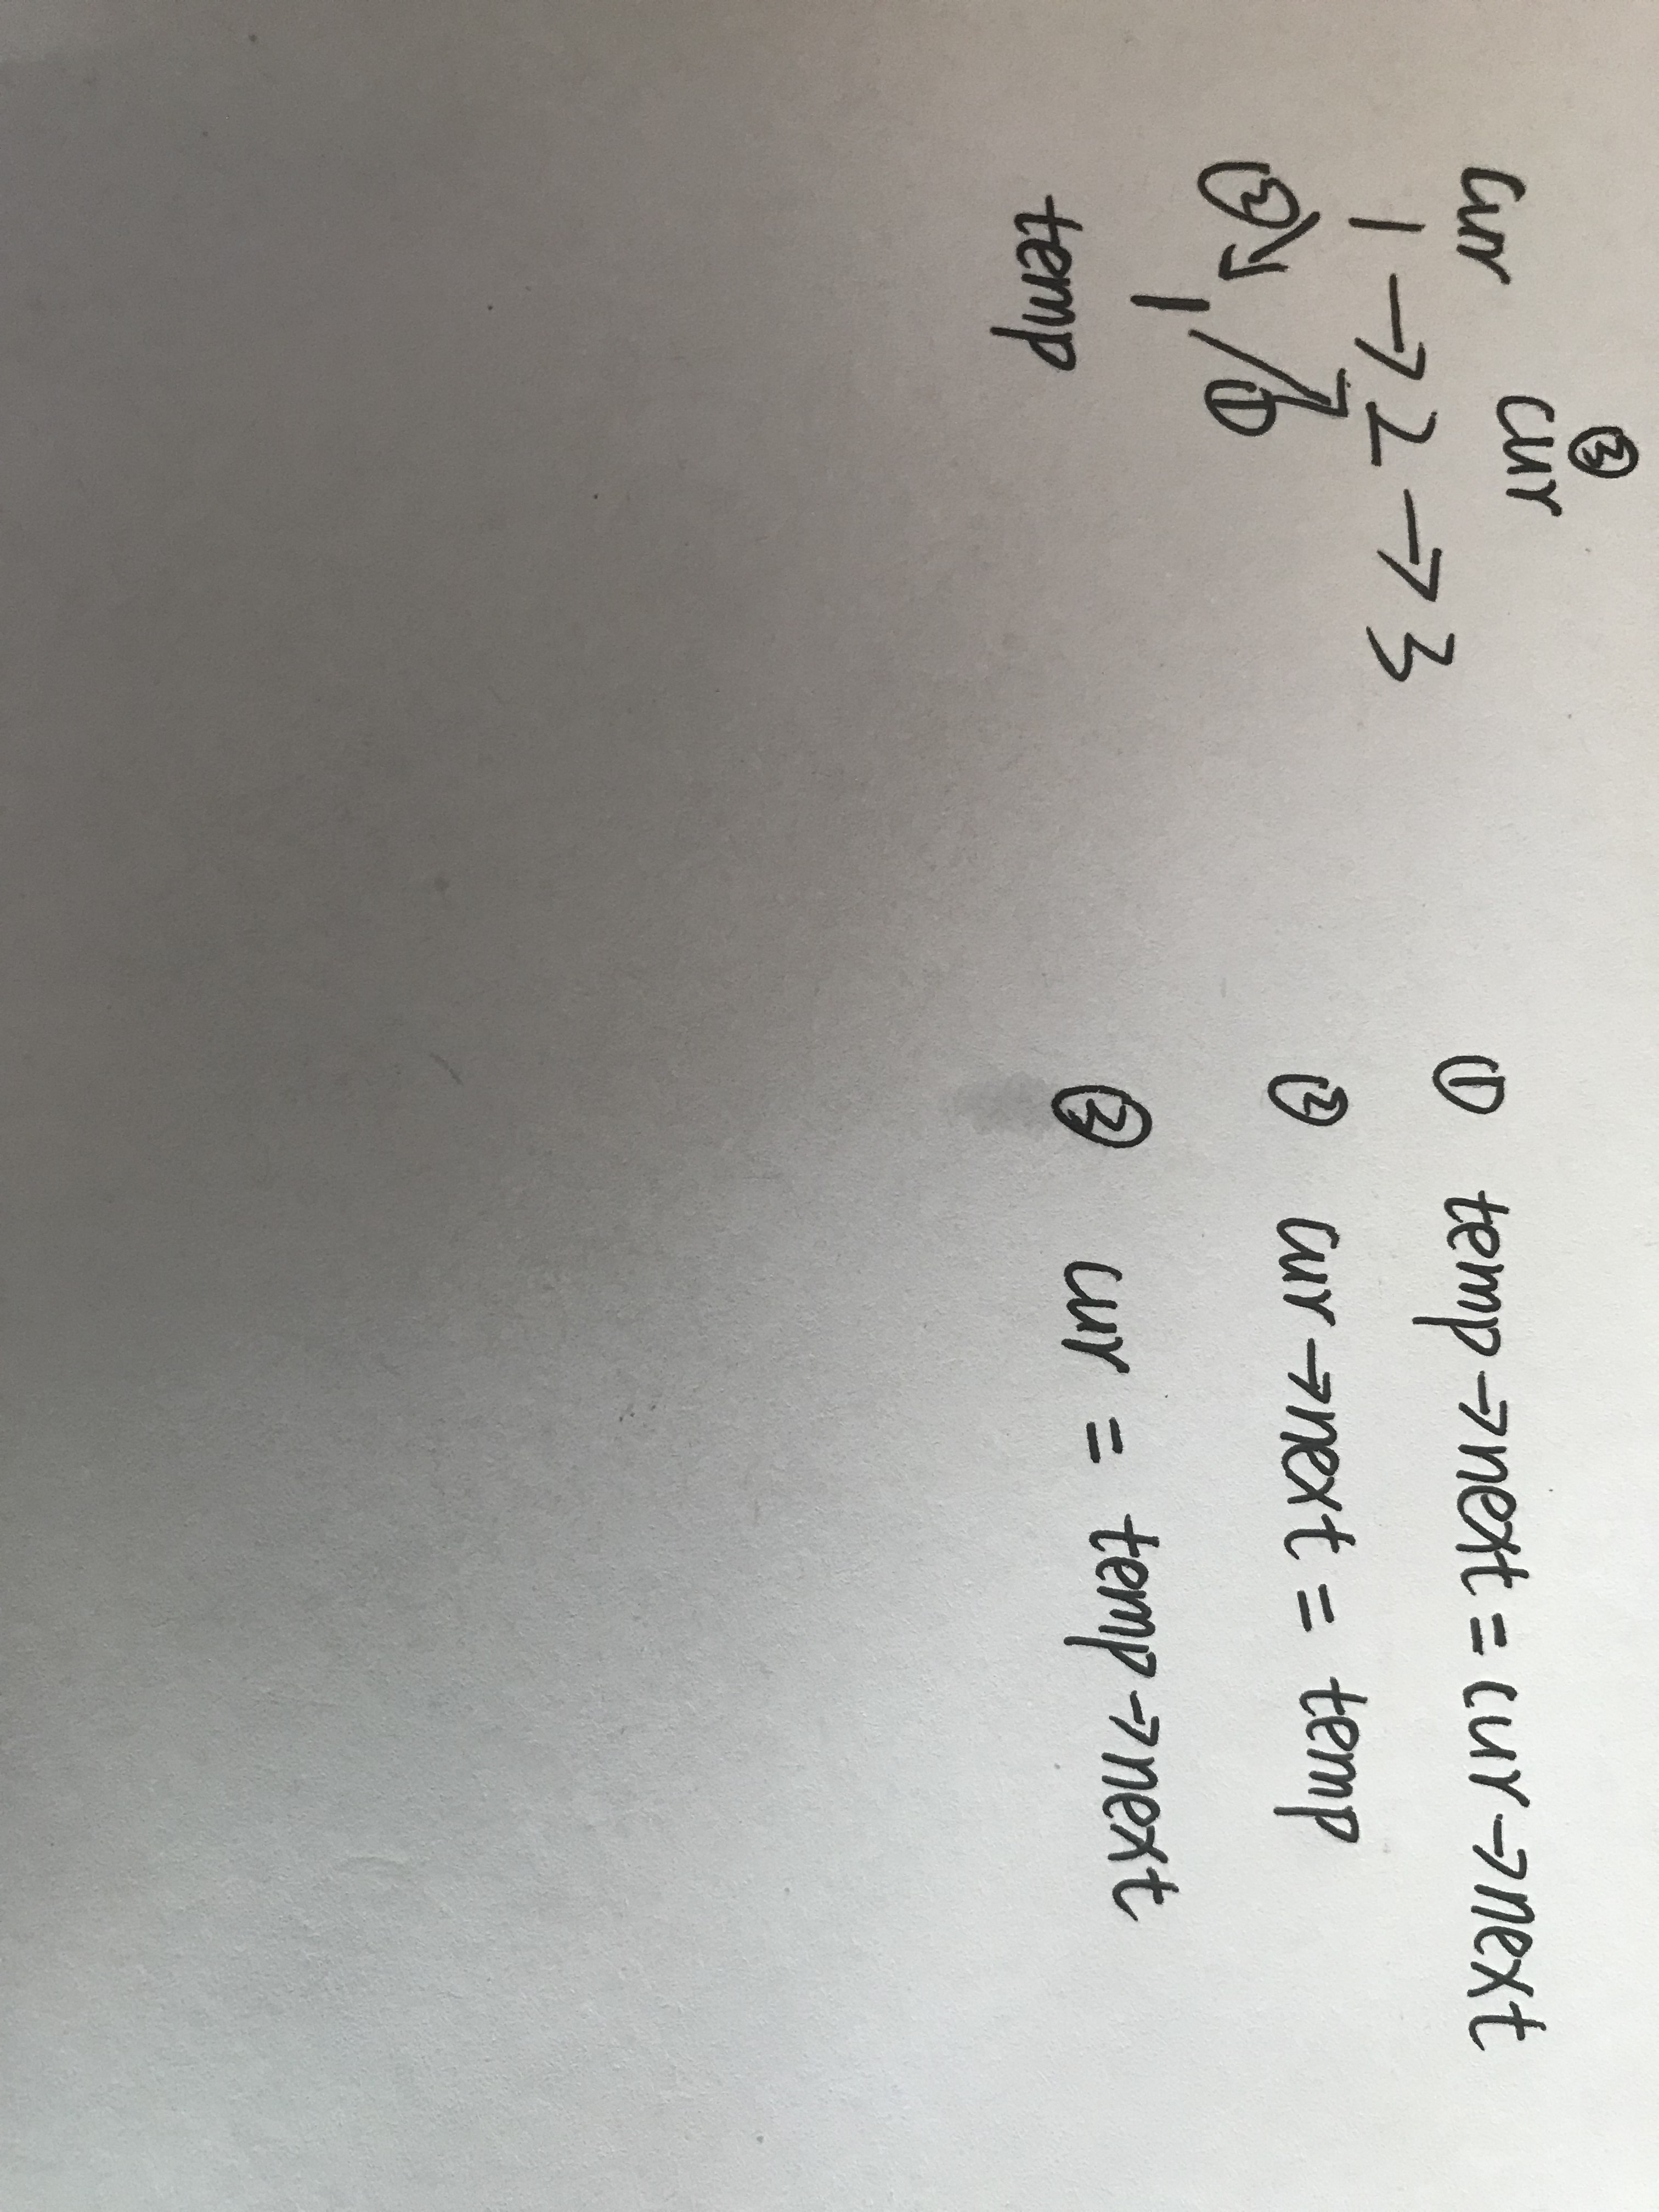 ③
cur cur
1 → 2 → 3
② ①
1
temp
① temp→next = cur→next
② cur→next = temp
③ cur = temp→next